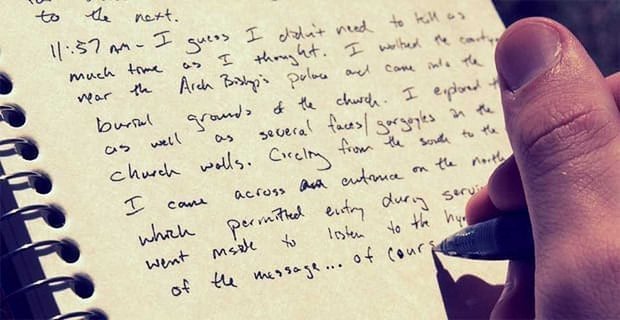 to the next.
11:57 AM - I guess I didn't need to kill as
much time as I thought. I walked the courtyar
near the Arch Bishop's palace and came into the
burial grounds of the church. I explored th
as well as several faces/gargoyles in the
church walls. Circling from the south to the
I came across an entrance on the north
which permitted entry during servi
went inside to listen to the hy
of the message... of cours